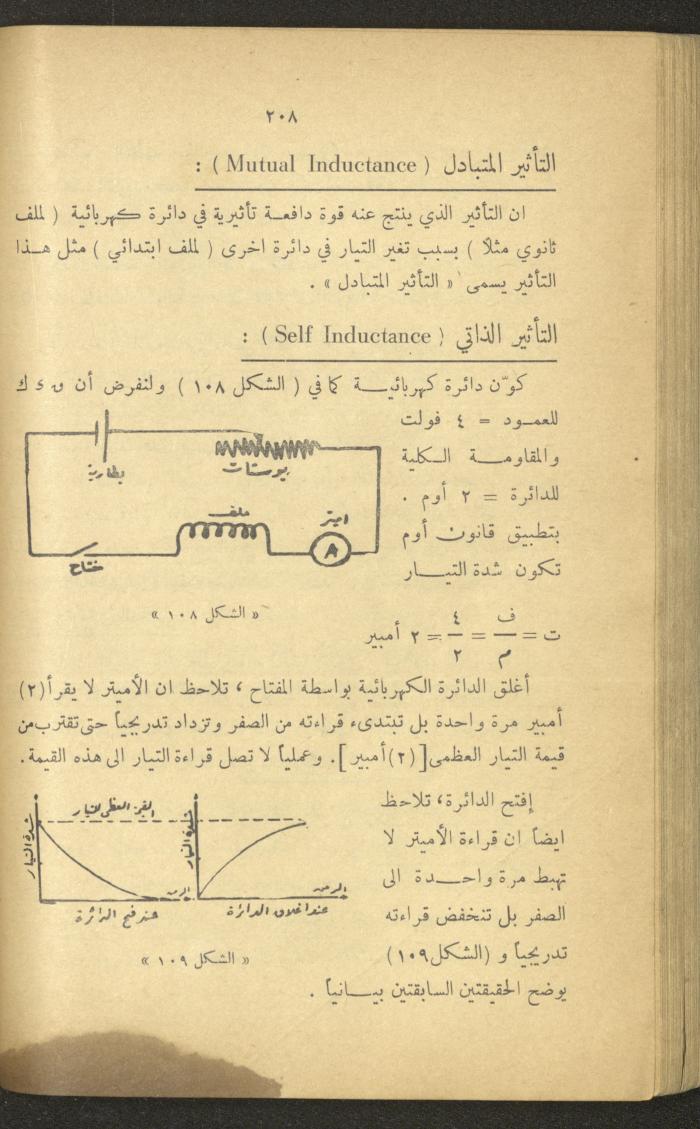 ٢٠٨
التأثير المتبادل ( Mutual Inductance ) :
ان التأثير الذي ينتج عنه قوة دافعة تأثيرية في دائرة كهربائية ( لملف
ثانوي مثلاً ) بسبب تغير التيار في دائرة اخرى ( لملف ابتدائي ) مثل هذا
التأثير يسمى « التأثير المتبادل » .
التأثير الذاتي ( Self Inductance ) :
كوّن دائرة كهربائية كما في ( الشكل ١٠٨ ) ولنفرض أن ق د ك
للعمود = ٤ فولت
والمقاومة الكلية
للدائرة = ٢ أوم .
بتطبيق قانون أوم
تكون شدة التيار
بطارية
يوستات
ملف
اميتر
A
فتاح
« الشكل ١٠٨ »
ت = ف / م = ٤ / ٢ = ٢ أمبير
أغلق الدائرة الكهربائية بواسطة المفتاح ، تلاحظ ان الأميتر لا يقرأ (٢)
أمبير مرة واحدة بل تبتدىء قراءته من الصفر وتزداد تدريجياً حتى تقترب من
قيمة التيار العظمى [ (٢) أمبير ] . وعملياً لا تصل قراءة التيار الى هذه القيمة .
إفتح الدائرة ، تلاحظ
ايضاً ان قراءة الأميتر لا
تهبط مرة واحدة الى
الصفر بل تنخفض قراءته
تدريجياً و (الشكل ١٠٩)
يوضح الحقيقتين السابقتين بيانياً .
العظمى للتيار
شدة التيار
شدة التيار
الزمن
الزمن
عند اغلاق الدائرة
عند فتح الدائرة
« الشكل ١٠٩ »